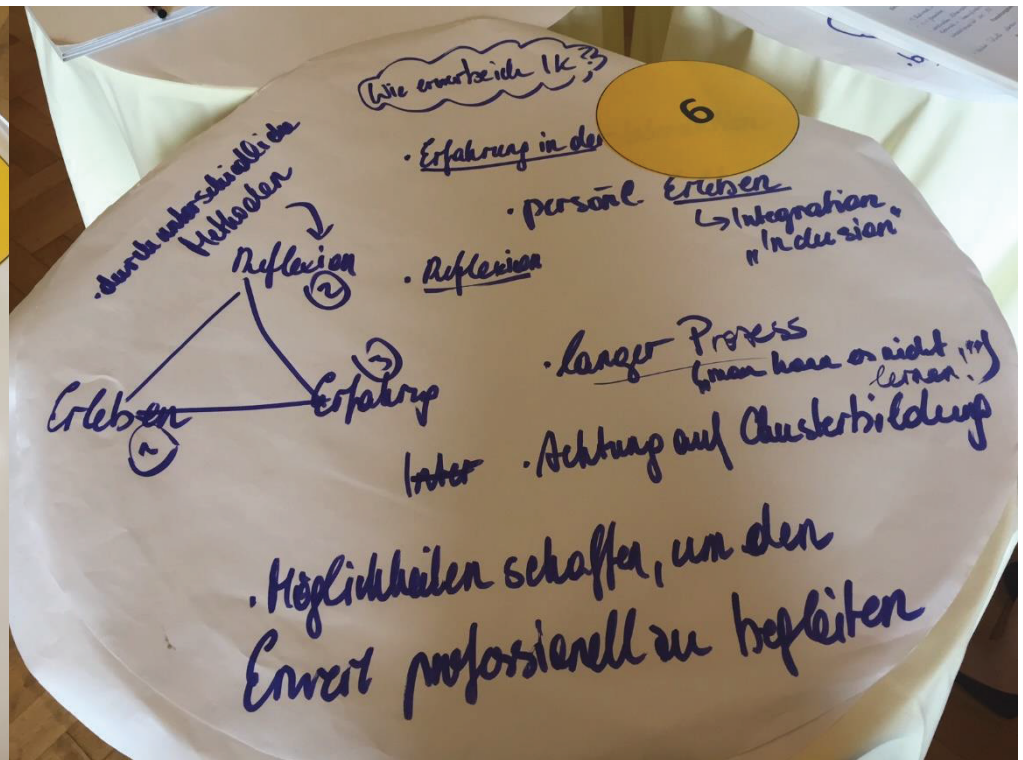 Wie erwerbe ich IK??
6
· Erfahrung in der
· persönl. Erleben
↳ Integration
"Inclusion"
· Reflexion
· durch unterschiedliche
Methoden
Reflexion
2
Erleben
1
3
Erfahrung
· langer Prozess
("man kann es nicht
lernen!")
· Achtung auf Clusterbildung
· Möglichkeiten schaffen, um den
Erwerb professionell zu begleiten